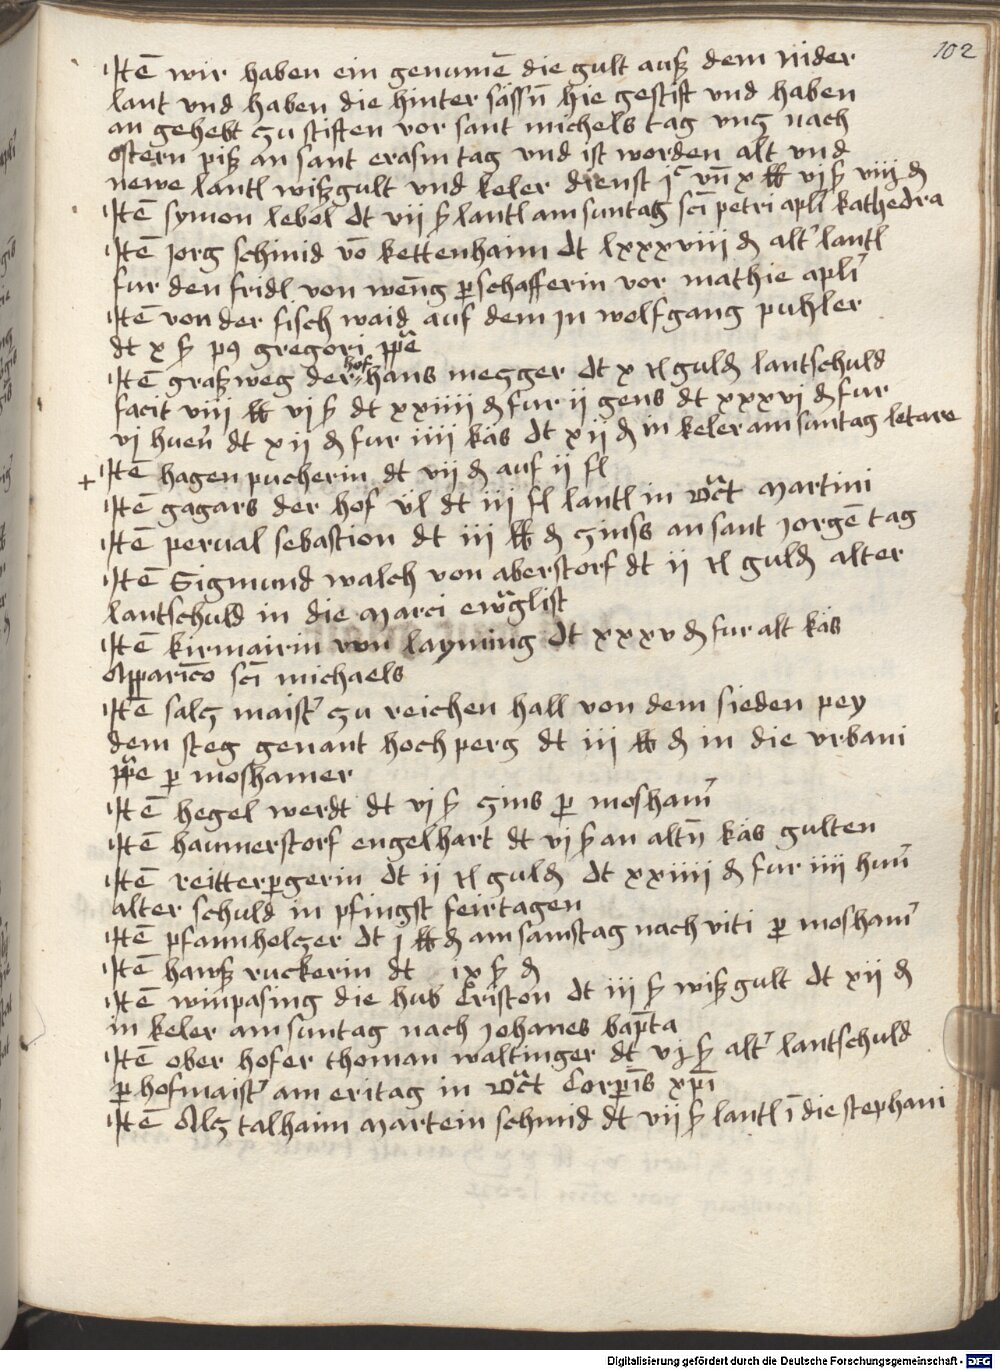 102
Itē wir haben ein genumē die gult auß dem nider
lant vnd haben die hinter sassn̄ hie gestift vnd haben
an gehebt zu stiften vor sant michels tag vnz nach
ostern piß an sant erasm tag vnd ist worden alt vnd
newe lantl wißgult vnd keler dienst jc vn̄ x ℔ vj ß viij ₰
Itē symon lebol dt vij ß lantl am suntag sci petri apli kathedra
Itē jorg schmid vō kettenhaim dt lxxxviij ₰ alt' lantl
fur den fridl von weng pschafferin vor mathie apli
Itē von der fisch waid auf dem jn wolfgang puhler
dt x ß p9 gregori ppē
Itē graßweg der hof hans mezger dt x rl guld lantschuld
facit viij ℔ vj ß dt xxiiij ₰ fur ij gens dt xxxvj ₰ fur
vj huen̄ dt xij ₰ fur iiij käs dt xij ₰ in keler am suntag letare
+ Itē hagenpucherin dt vij ₰ auf ij fl
Itē gagars der hof vl dt iij fl lantl in oct martini
Itē perual sebastion dt iij ℔ ₰ zinss an sant jorgē tag
Itē Sigmund walch von aberstorf dt ij rl guld alter
lantschuld in die marci ewaglist
Itē kirmairin von layming dt xxxv ₰ fur alt käs
Apparico sci michaels
Itē salz maist' zu reichen hall von dem sieden pey
dem steg genant hochperg dt iij ℔ ₰ in die vrbani
ppe p moshamer
Itē hegel werdt dt vj ß zins p mosham'
Itē haumerstorf engelhart dt vj ß an altn̄ käs gulten
Itē reitterpgerin dt ij rl guld dt xxiiij ₰ fur iiij hun̄
alter schuld in pfingst feirtagen
Itē pfannholzer dt j ℔ ₰ am samstag nach viti p mosham'
Itē hanß ruckerin dt ix ß ₰
Itē winpasing die hub Criston dt iij ß wißgult dt xij ₰
in keler am suntag nach johanes bapta
Itē ober hofer thoman waltinger dt vj ß alt' lantschuld
p hofmaist' am eritag in oct Corpis xpi
Itē Alz talhaim martein schmid dt vij ß lantl ī die stephani
Digitalisierung gefördert durch die Deutsche Forschungsgemeinschaft - DFG